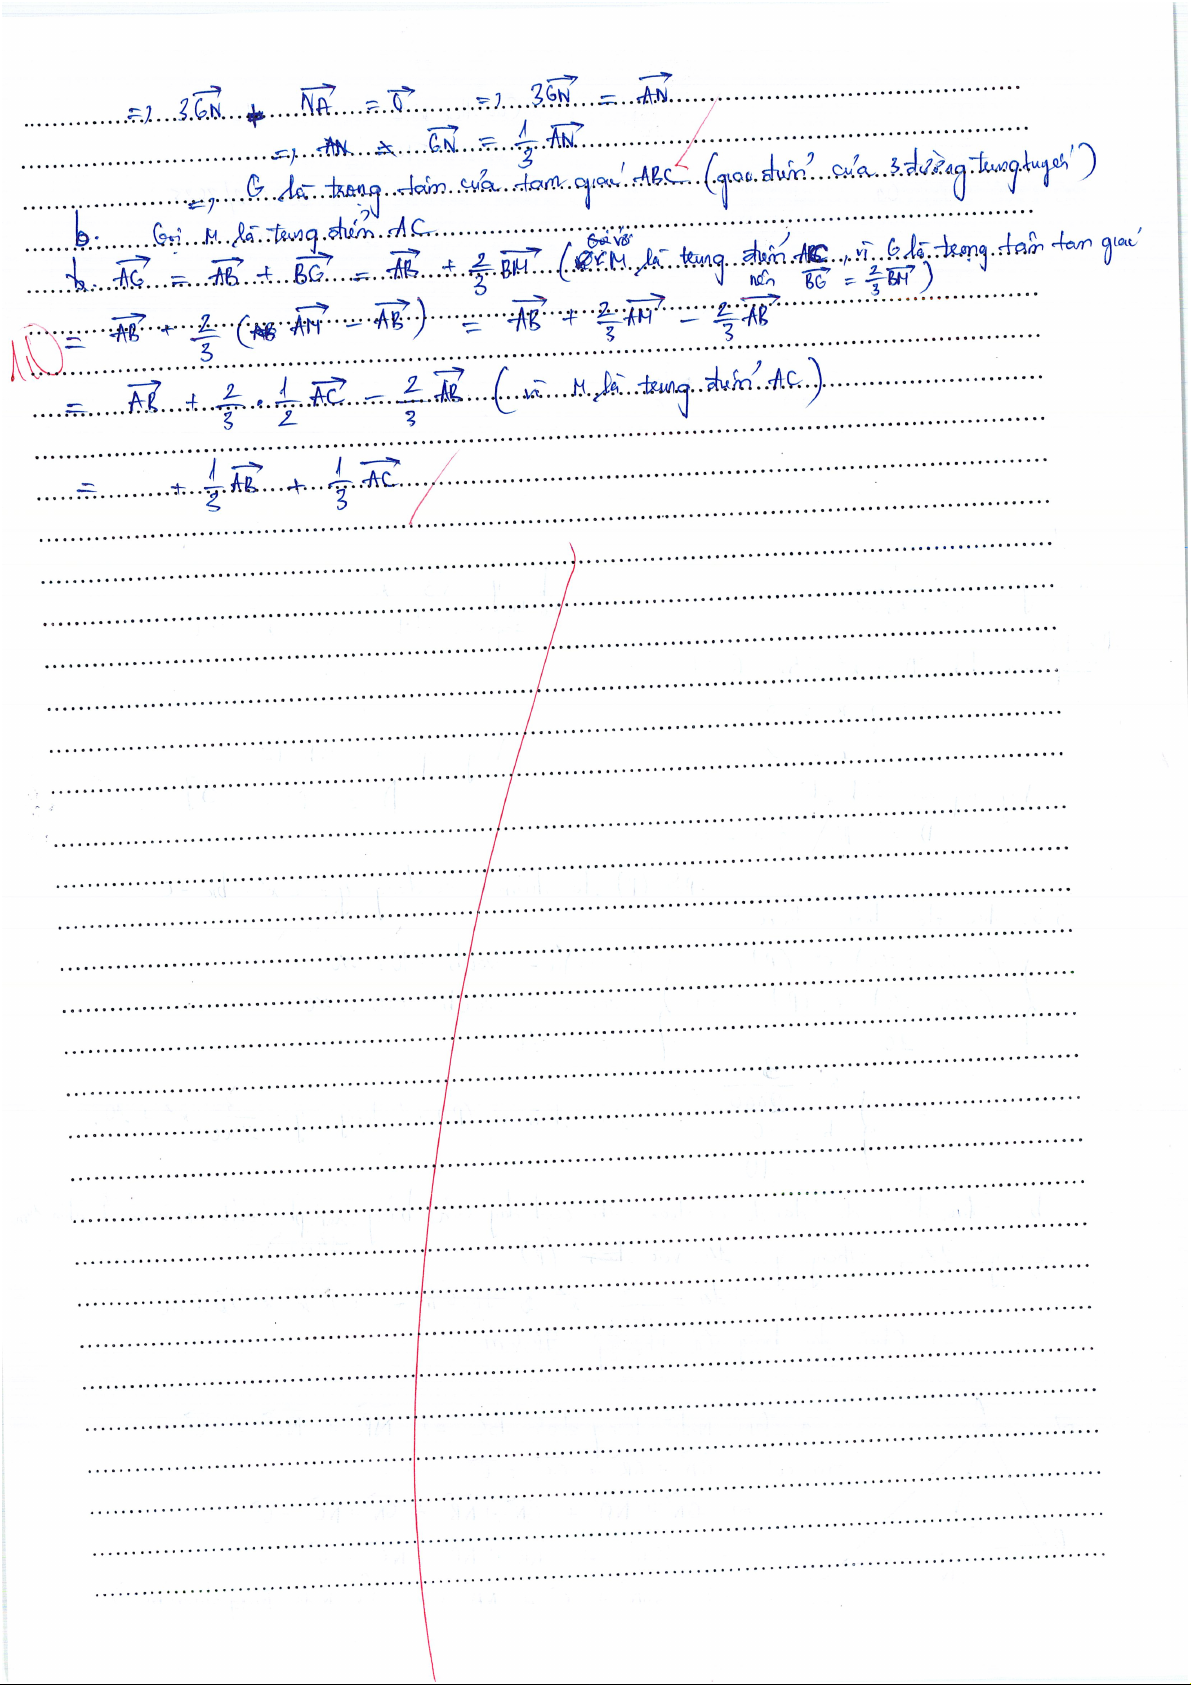 => 3GN⃗ + NA⃗ = 0⃗ => 3GN⃗ = AN⃗
=> GN⃗ = 1/3 AN⃗
=> G là trọng tâm của tam giác ABC (giao điểm của 3 đường trung tuyến)
b. Gọi M là trung điểm AC
b. AG⃗ = AB⃗ + BG⃗ = AB⃗ + 2/3 BM⃗ ( M là trung điểm AC, vì G là trọng tâm tam giác
nên BG⃗ = 2/3 BM⃗ )
= AB⃗ + 2/3 (AM⃗ - AB⃗) = AB⃗ + 2/3 AM⃗ - 2/3 AB⃗
= AB⃗ + 2/3 . 1/2 AC⃗ - 2/3 AB⃗ (vì M là trung điểm AC)
= + 1/3 AB⃗ + 1/3 AC⃗